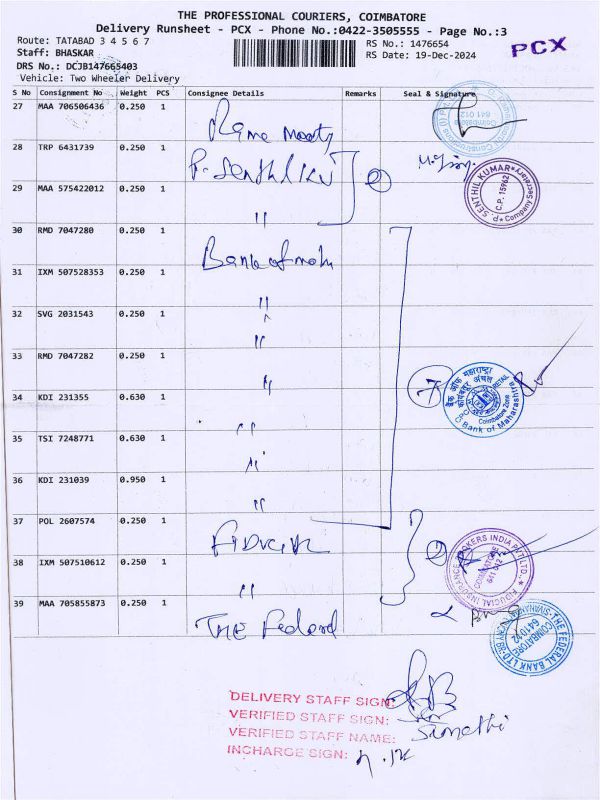 THE PROFESSIONAL COURIERS, COIMBATORE
Delivery Runsheet - PCX - Phone No.:0422-3505555 - Page No.:3
Route: TATABAD 3 4 5 6 7
RS No.: 1476654
PCX
Staff: BHASKAR
RS Date: 19-Dec-2024
DRS No.: DCJB147665403
Vehicle: Two Wheeler Delivery
S No Consignment No Weight PCS Consignee Details Remarks Seal & Signature
27 MAA 706506436 0.250 1
28 TRP 6431739 0.250 1 P. Senthil
29 MAA 575422012 0.250 1 "
2
SENTHIL KUMAR
C.P. 15962
Company Secretary
30 RMD 7047280 0.250 1 Bank of mah
31 IXM 507528353 0.250 1 "
32 SVG 2031543 0.250 1 "
33 RMD 7047282 0.250 1 "
34 KDI 231355 0.630 1 "
35 TSI 7248771 0.630 1 "
36 KDI 231039 0.950 1 "
7
बैंक ऑफ महाराष्ट्र
Coimbatore Zone
Bank of Maharashtra
37 POL 2607574 0.250 1
38 IXM 507510612 0.250 1 "
2
FIDUCIAL INSURANCE BROKERS INDIA PVT LTD.,
COIMBATORE
641 012
39 MAA 705855873 0.250 1 THE Federal
THE FEDERAL BANK LTD
COIMBATORE
641012
DELIVERY STAFF SIGN:
VERIFIED STAFF SIGN:
VERIFIED STAFF NAME: Sumathi
INCHARGE SIGN: